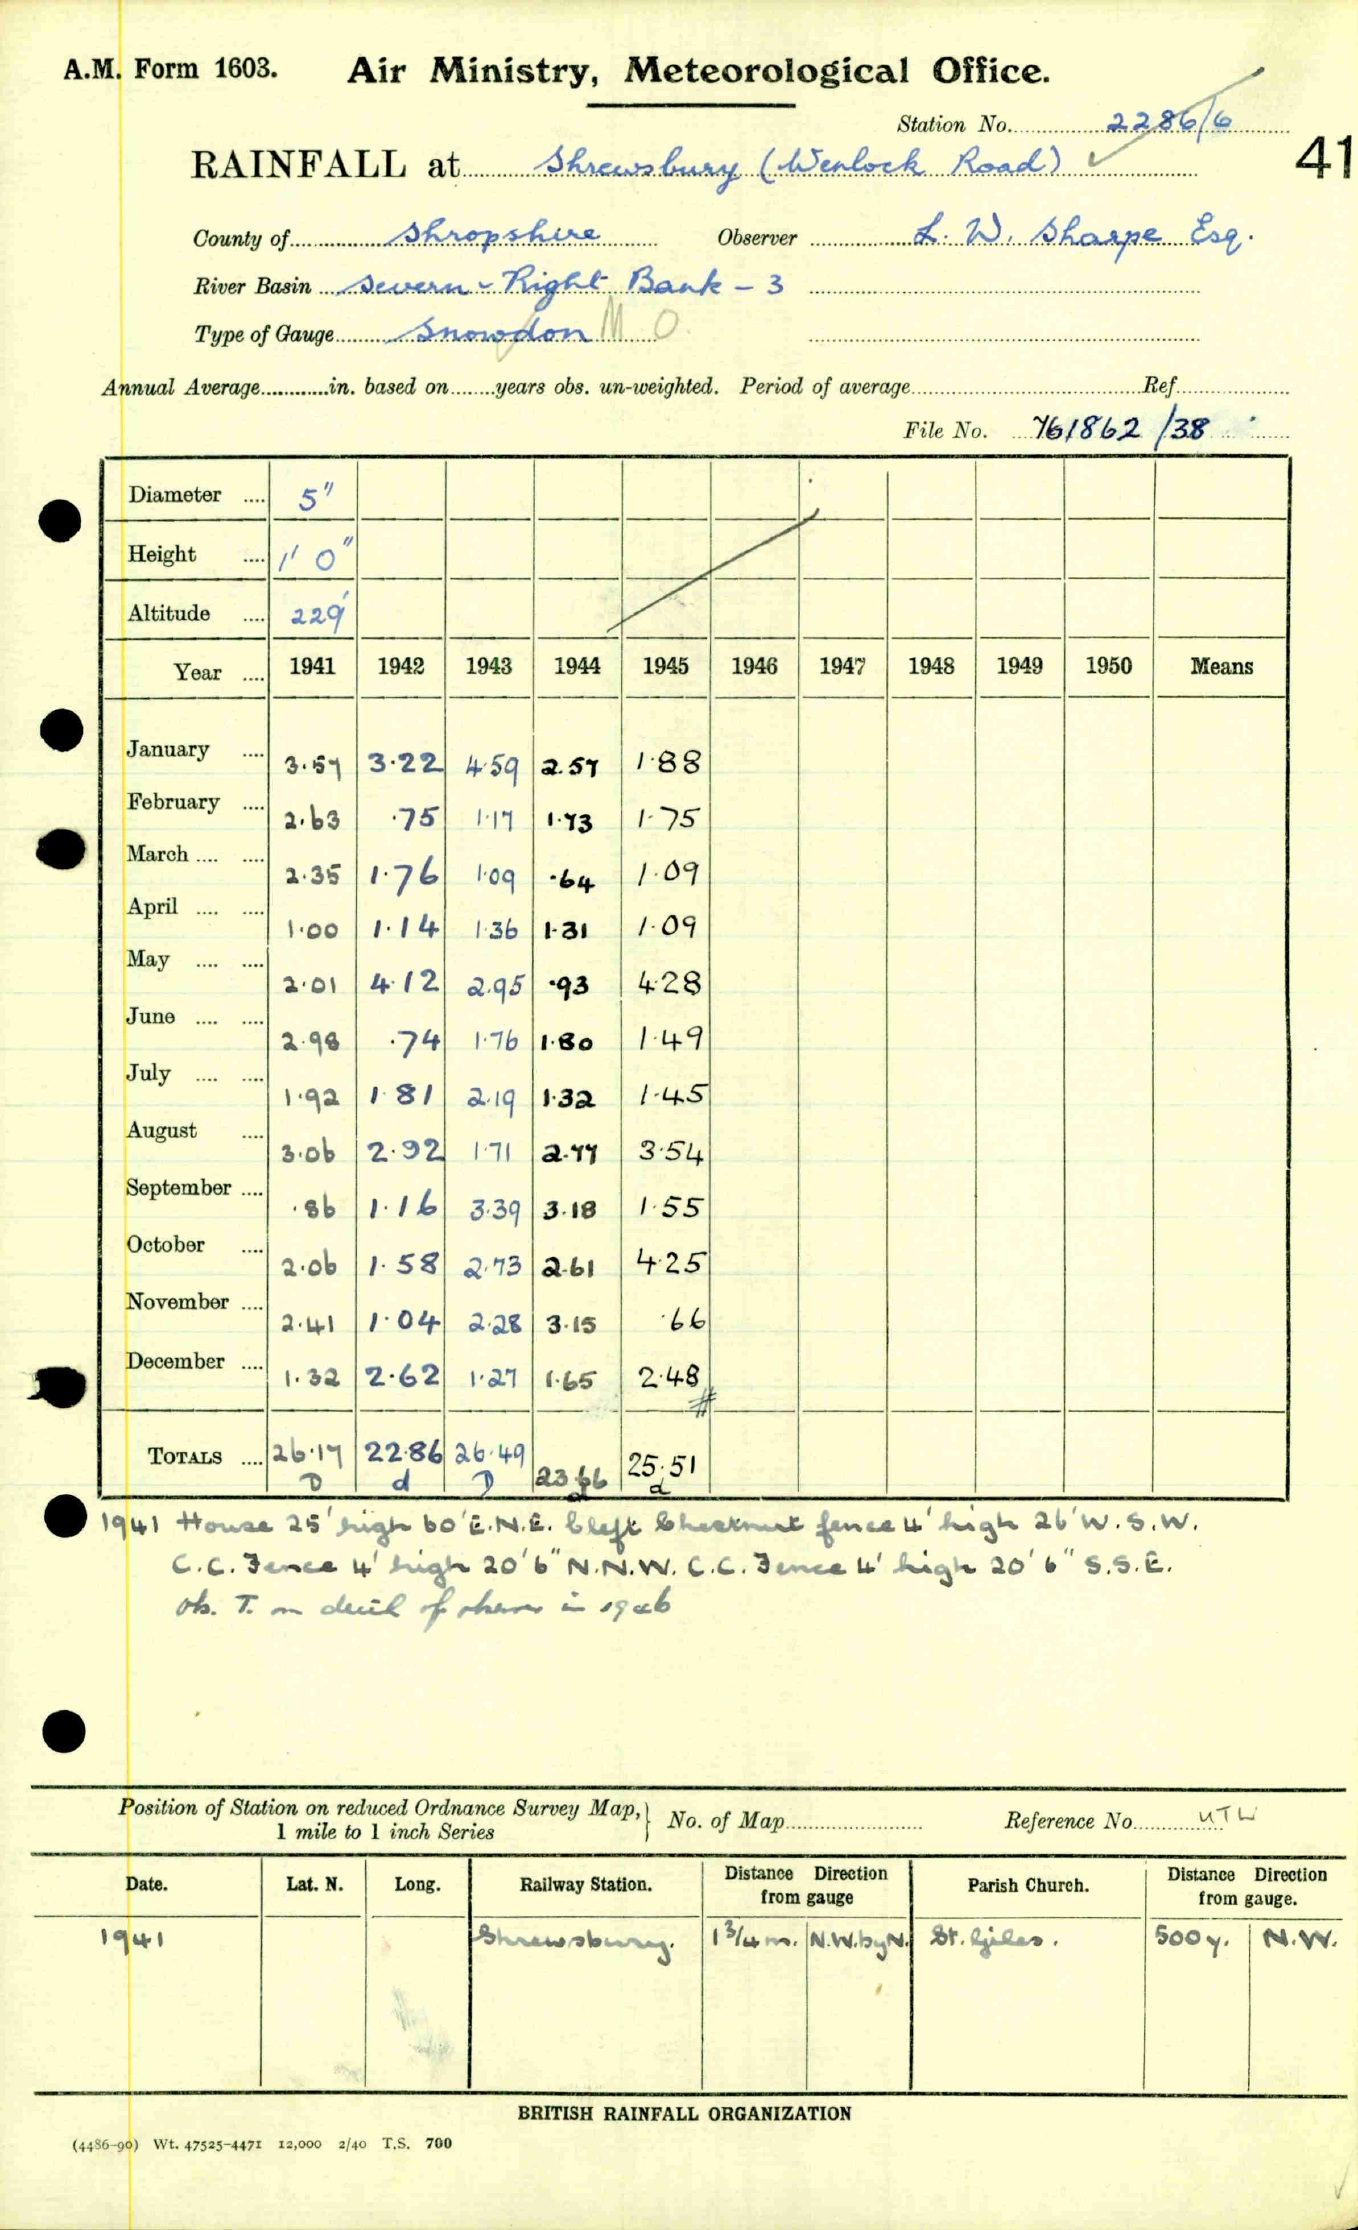 A.M. Form 1603. Air Ministry, Meteorological Office.
Station No. 2286/6
RAINFALL at Shrewsbury (Wenlock Road) ✓ 41
County of Shropshire Observer L. W. Sharpe Esq.
River Basin Severn - Right Bank - 3
Type of Gauge Snowdon M O.
Annual Average............in. based on........years obs. un-weighted. Period of average............Ref............
File No. 761862/38
Diameter .... 5"
Height .... 1' 0"
Altitude .... 229'
Year .... 1941 1942 1943 1944 1945 1946 1947 1948 1949 1950 Means
January .... 3.57 3.22 4.59 2.57 1.88
February .... 2.63 .75 1.17 1.73 1.75
March .... .... 2.35 1.76 1.09 .64 1.09
April .... .... 1.00 1.14 1.36 1.31 1.09
May .... .... 2.01 4.12 2.95 .93 4.28
June .... .... 2.98 .74 1.76 1.80 1.49
July .... .... 1.92 1.81 2.19 1.32 1.45
August .... 3.06 2.92 1.71 2.77 3.54
September .... .86 1.16 3.39 3.18 1.55
October .... 2.06 1.58 2.73 2.61 4.25
November .... 2.41 1.04 2.28 3.15 .66
December .... 1.32 2.62 1.27 1.65 2.48
#
TOTALS .... 26.17 22.86 26.49 23.66 25.51
D d D d d
1941 House 25' high 60' E.N.E. Cleft Chestnut fence 4' high 26' W.S.W.
C.C. Fence 4' high 20'6" N.N.W. C.C. Fence 4' high 20'6" S.S.E.
ob. T. on of in 1946
Position of Station on reduced Ordnance Survey Map, 1 mile to 1 inch Series } No. of Map............ Reference No. UTW
Date. Lat. N. Long. Railway Station. Distance Direction from gauge Parish Church. Distance Direction from gauge.
1941 Shrewsbury. 1 3/4 m. N.W. by N. St. Giles. 500 y. N.W.
BRITISH RAINFALL ORGANIZATION
(4486-90) Wt. 47525-4471 12,000 2/40 T.S. 700